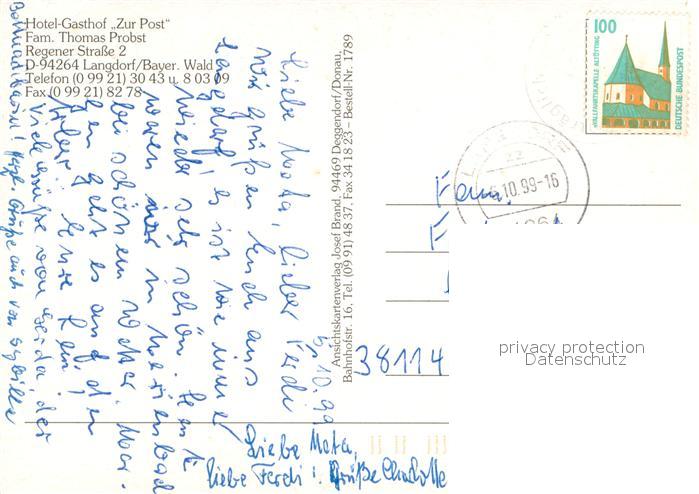 Hotel-Gasthof „Zur Post"
Fam. Thomas Probst
Regener Straße 2
D-94264 Langdorf/Bayer. Wald
Telefon (0 99 21) 30 43 u. 8 03 09
Fax (0 99 21) 82 78
5.10.99
Liebe Meta, lieber Ferdi
Wir grüßen Euch aus
Langdorf, es ist wie immer
wieder sehr schön. Heute
waren wir in Marienbad
bei schönem Wetter.
geht es auch
Viele Grüße von
Grüße auch von Sybille
Liebe Meta,
liebe Ferdi! Grüße Charlotte
Ansichtskartenverlag Josef Brand, 94469 Deggendorf/Donau,
Bahnhofstr. 16, Tel. (09 91) 48 37, Fax 34 18 23 – Bestell-Nr. 1789
100
WALLFAHRTSKAPELLE ALTÖTTING
DEUTSCHE BUNDESPOST
.10.99-16
Fam.
38114
privacy protection
Datenschutz